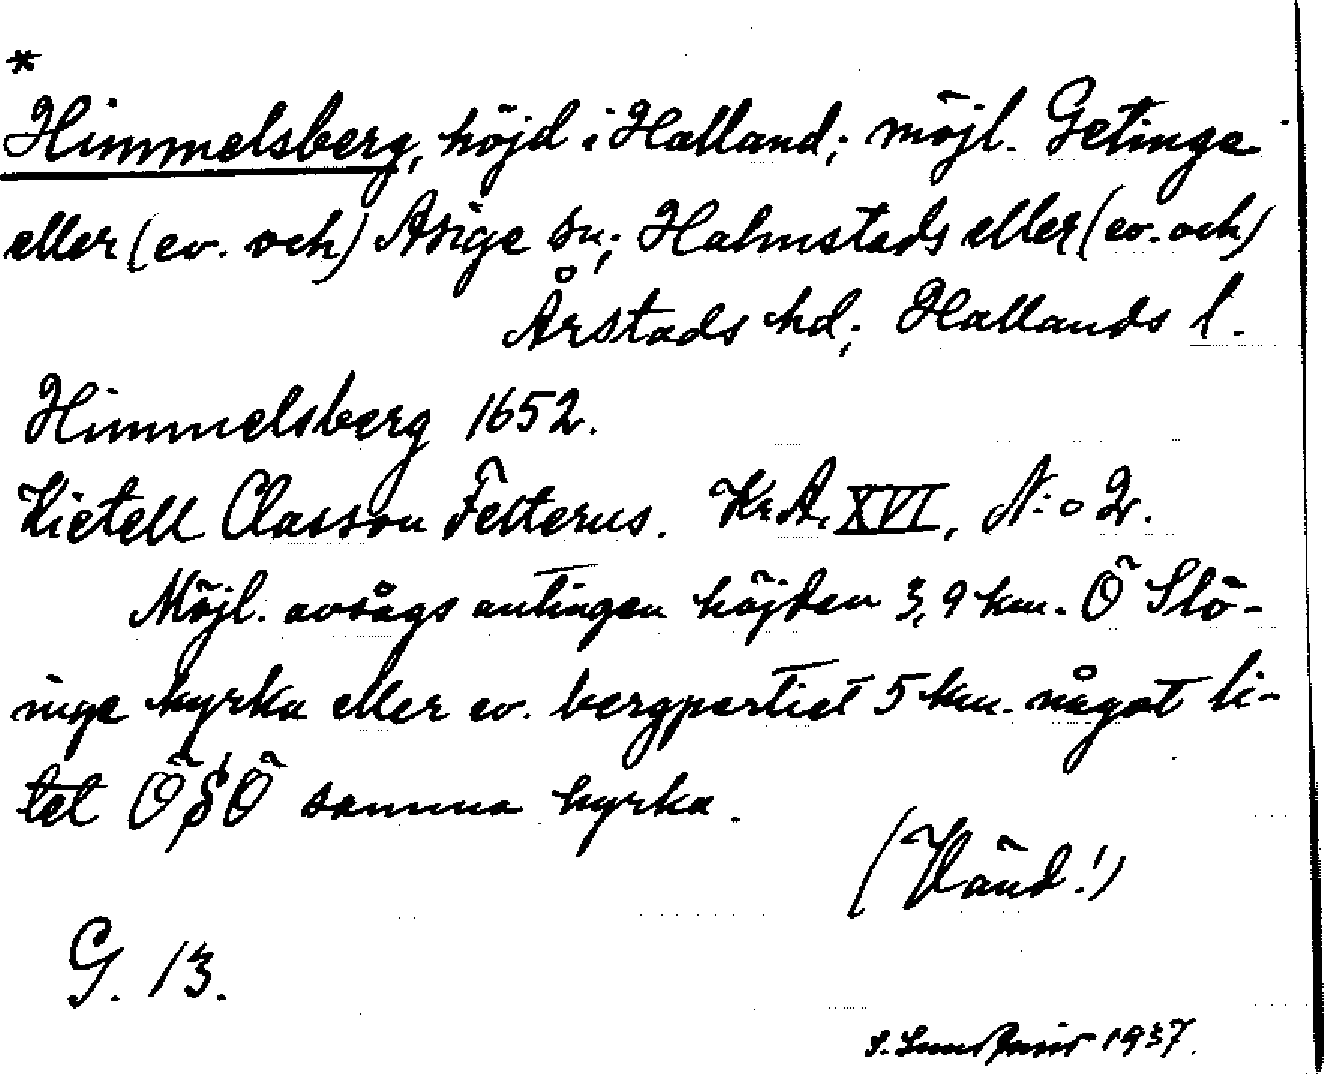 *
Himmelsberg, höjd i Halland; möjl. Getinge
eller (ev. och) Asige sn; Halmstads eller (ev. och)
Årstads hd; Hallands l.
Himmelsberg 1652.
Kietell Classon Felterus. Kr.A. XVI, N:o 2.
Möjl. avsågs antingen höjden 3,9 km. Ö Slö-
inge kyrka eller ev. bergpartiet 5 km. något li-
tet ÖSÖ samma kyrka.
(Vänd!)
G. 13.
S. 1937.